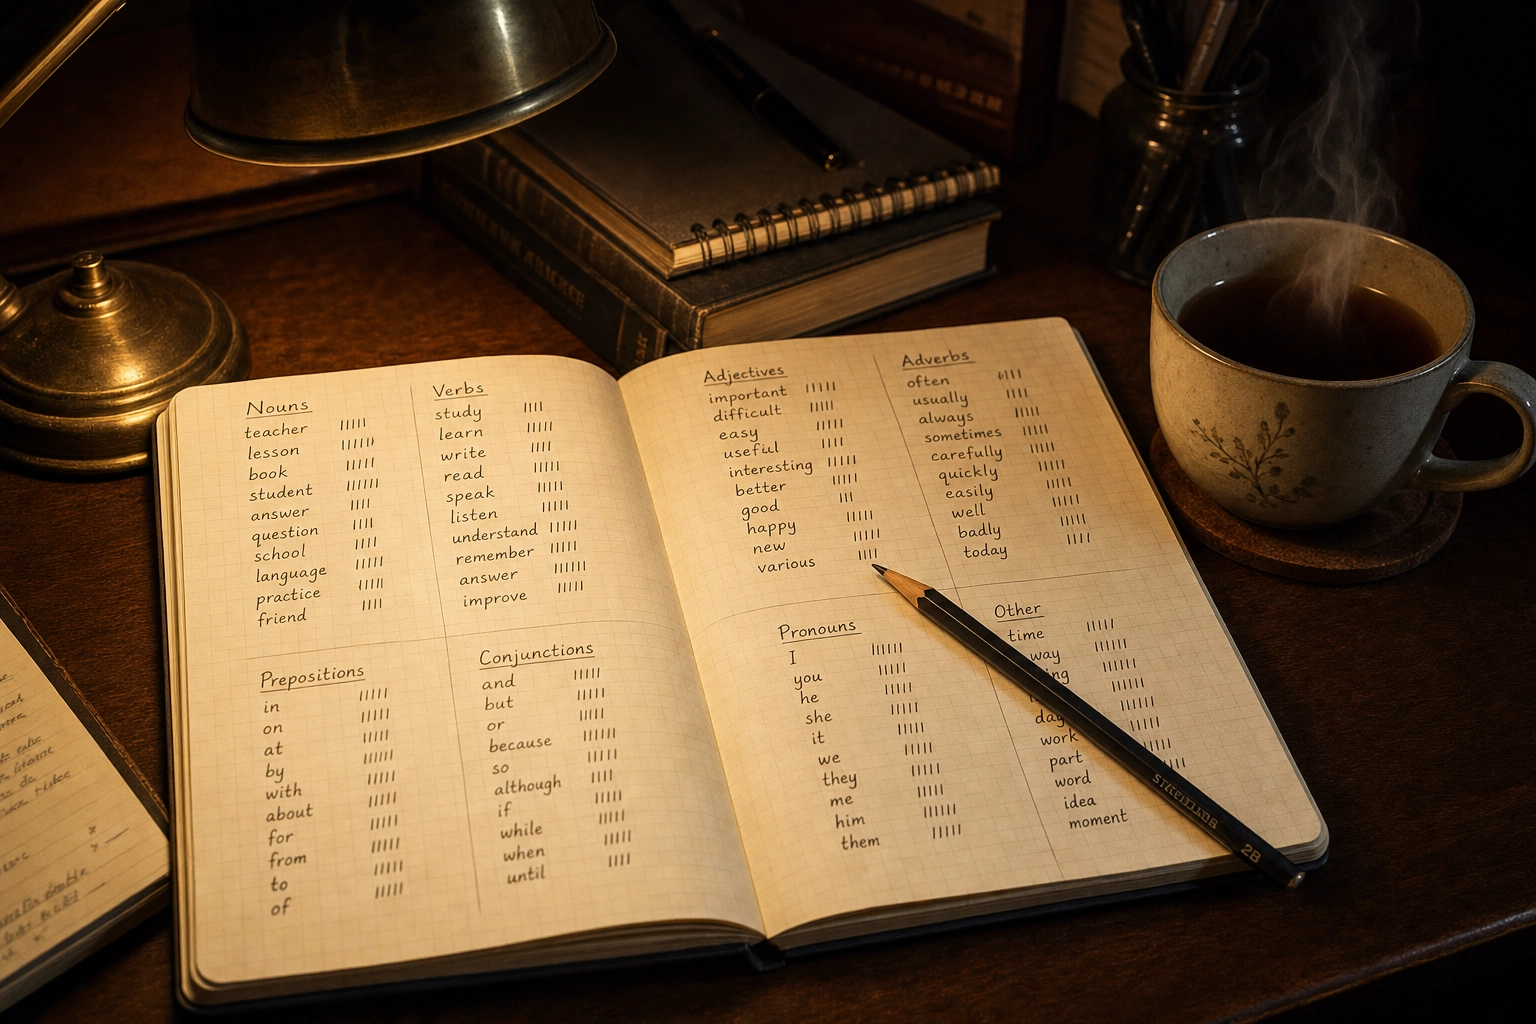 Nouns
teacher
lesson
book
student
answer
question
school
language
practice
friend
Verbs
study
learn
write
read
speak
listen
understand
remember
answer
improve
Prepositions
in
on
at
by
with
about
for
from
to
of
Conjunctions
and
but
or
because
so
although
if
while
when
until
Adjectives
important
difficult
easy
useful
interesting
better
good
happy
new
various
Adverbs
often
usually
always
sometimes
carefully
quickly
easily
well
badly
today
Pronouns
I
you
he
she
it
we
they
me
him
them
Other
time
way
day
work
part
word
idea
moment
2B